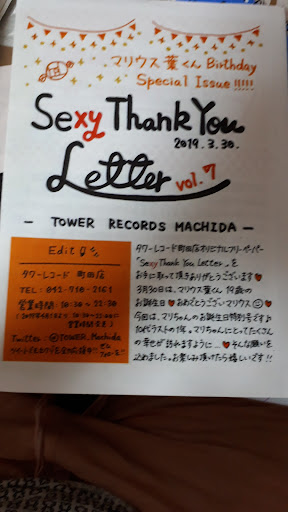 マリウス葉くん Birthday
Special Issue!!!!!
Sexy Thank You
2019.3.30.
Letter vol.7
- TOWER RECORDS MACHIDA -
Edit
タワーレコード 町田店
営業時間:10:30〜22:30
Twitter:@TOWER_Machida
タワーレコード町田店オリジナルフリーペーパー
「Sexy Thank You Letter」を
お手に取って頂きありがとうございます♥
3月30日は、マリウス葉くん 19歳の
お誕生日♥おめでとうございマリウス☺♥
今回は、マリちゃんのお誕生日特別号です♪
10代ラストの1年。マリちゃんにとってたくさん
の幸せが訪れますように…♥そんな願いを
込めました。お楽しみ頂けたら嬉しいです!!